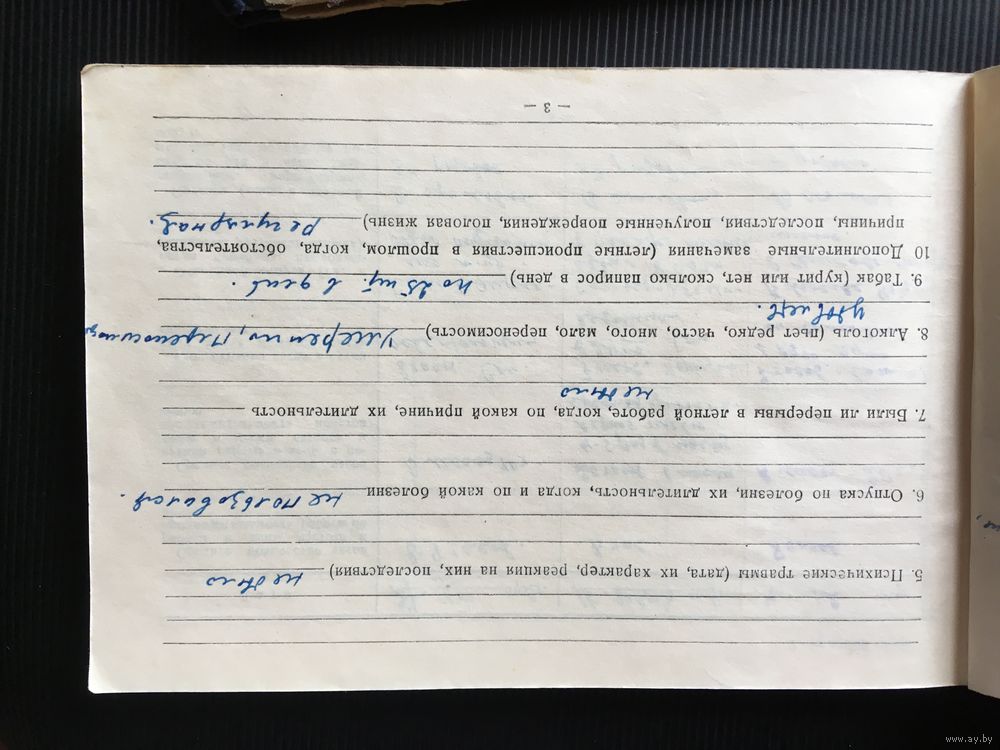 5. Психические травмы (дата, их характер, реакция на них, последствия) не было
6. Отпуска по болезни, их длительность, когда и по какой болезни не пользовался.
7. Были ли перерывы в летной работе, когда, по какой причине, их длительность
не было
8. Алкоголь (пьет редко, часто, много, мало, переносимость) Умеренно, переносимость
9. Табак (курит или нет, сколько папирос в день) по 25 шт. в день.
10 Дополнительные замечания (летные происшествия в прошлом, когда, обстоятельства,
причины, последствия, полученные повреждения, половая жизнь) Регулярная.
— 3 —
www.ay.by